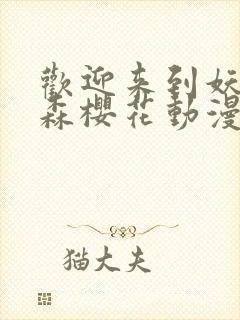 歡迎来到妖
森櫻花動漫
猫大夫